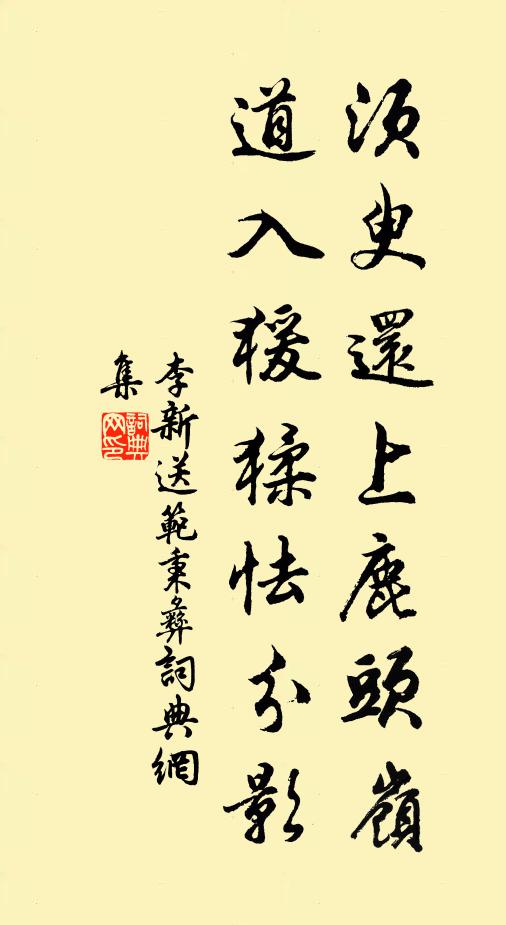 須臾還上鹿頭嶺
道入猨猱怯分影
李新送範秉彝詞典網
集
詞典網印